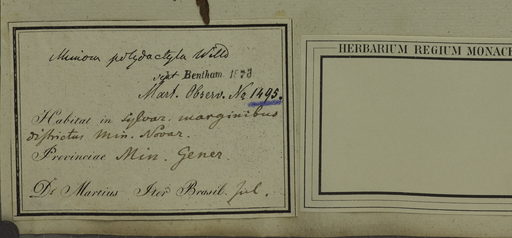 Mimosa polydactyla Willd
det Bentham. 1873
Mart. Observ. No 1495.
Habitat in sylvar. marginibus
districtus Min. Novar.
Provinciae Min. Gener.
Dr Martius Iter Brasil. Jul.
HERBARIUM REGIUM MONACE